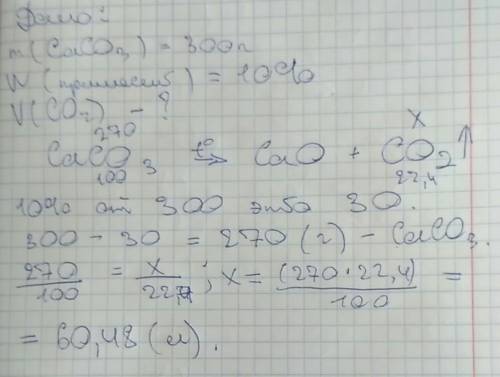 Дано:
m(CaCO3) = 300г
W(примесей) = 10%
V(CO2) - ?
270 X
CaCO3 t° → CaO + CO2↑
100 22,4
10% от 300 это 30.
300 - 30 = 270 (г) - CaCO3.
270/100 = x/22,4; x = (270·22,4)/100 =
= 60,48 (л).